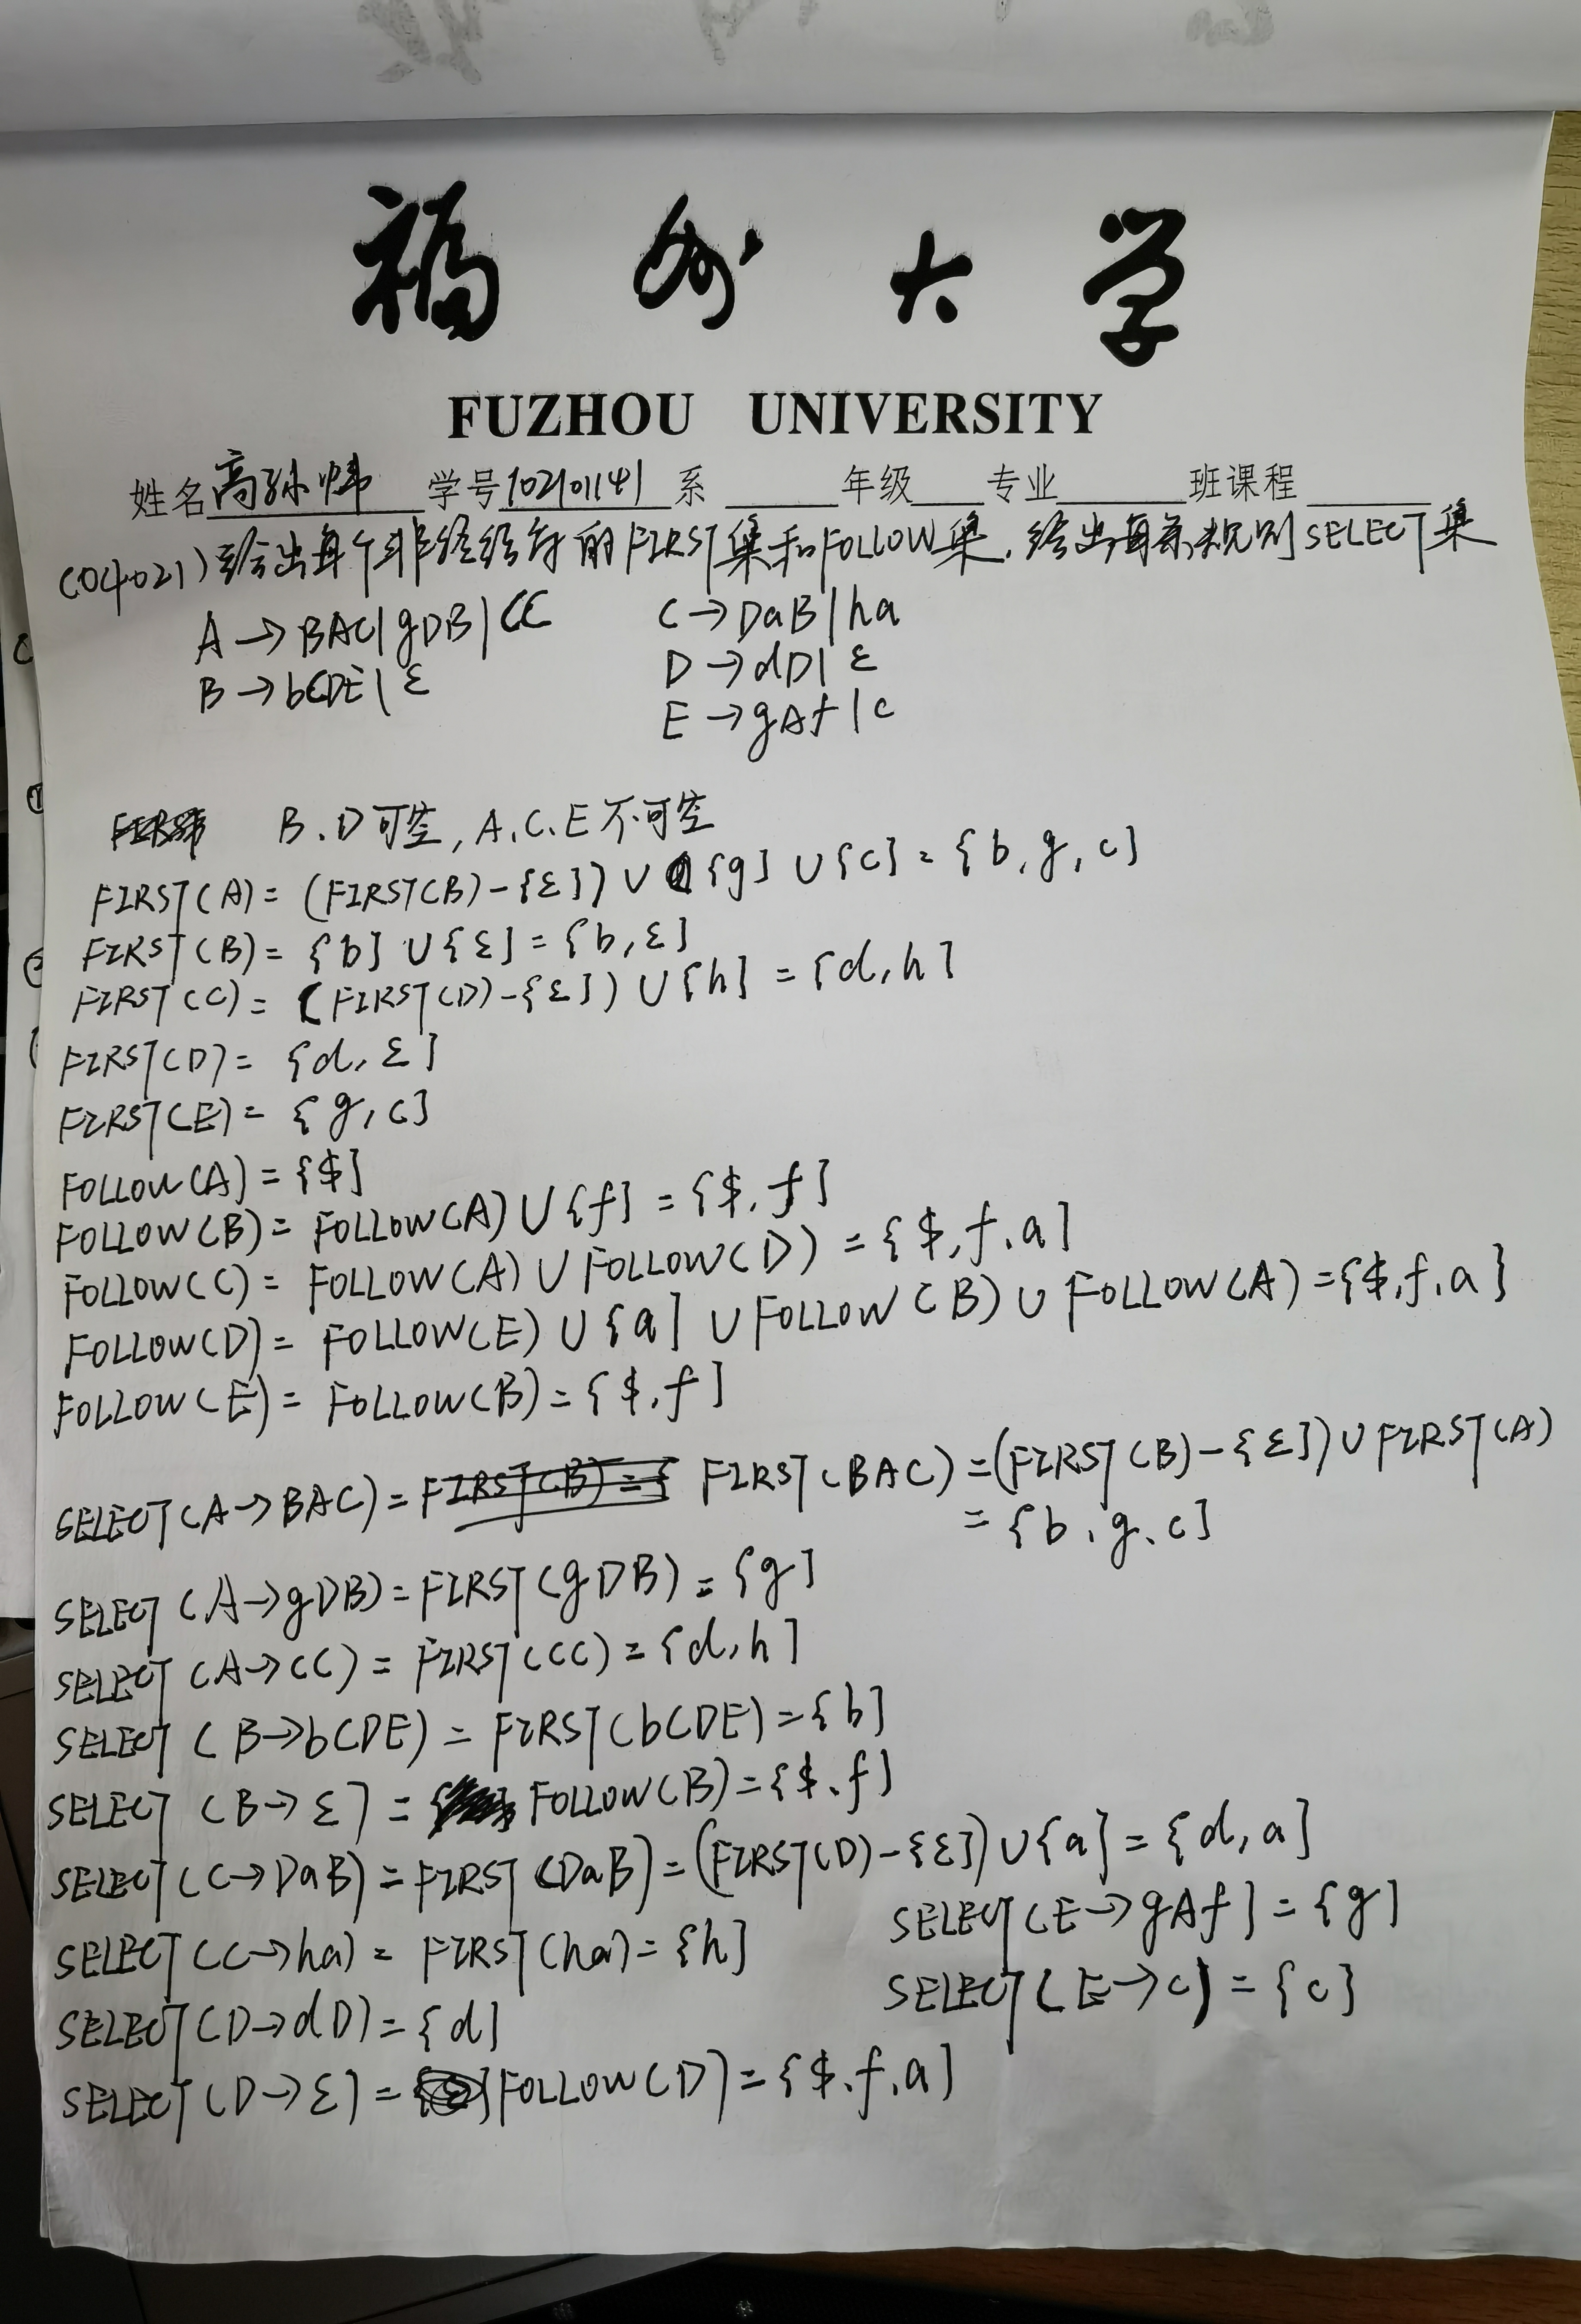 福州大学
FUZHOU UNIVERSITY
姓名高孙炜 学号102101141 系 年级 专业 班课程
(04021)给出每个非终结符的FIRST集和FOLLOW集,给出每条规则SELECT集
A→BAC|gDB|CC C→DaB|ha
B→bCDE|ε D→dD|ε
E→gAf|c
B.D可空,A.C.E不可空
FIRST(A)=(FIRST(B)-{ε})∪{g}∪{c}={b,g,c}
FIRST(B)={b}∪{ε}={b,ε}
FIRST(C)=(FIRST(D)-{ε})∪{h}={d,h}
FIRST(D)={d,ε}
FIRST(E)={g,c}
FOLLOW(A)={$}
FOLLOW(B)=FOLLOW(A)∪{f}={$,f}
FOLLOW(C)=FOLLOW(A)∪FOLLOW(D)={$,f,a}
FOLLOW(D)=FOLLOW(E)∪{a}∪FOLLOW(B)∪FOLLOW(A)={$,f,a}
FOLLOW(E)=FOLLOW(B)={$,f}
SELECT(A→BAC)=FIRST(BAC)=(FIRST(B)-{ε})∪FIRST(A)
={b,g,c}
SELECT(A→gDB)=FIRST(gDB)={g}
SELECT(A→CC)=FIRST(CC)={d,h}
SELECT(B→bCDE)=FIRST(bCDE)={b}
SELECT(B→ε)=FOLLOW(B)={$,f}
SELECT(C→DaB)=FIRST(DaB)=(FIRST(D)-{ε})∪{a}={d,a}
SELECT(C→ha)=FIRST(ha)={h} SELECT(E→gAf)={g}
SELECT(D→dD)={d} SELECT(E→c)={c}
SELECT(D→ε)=FOLLOW(D)={$,f,a}